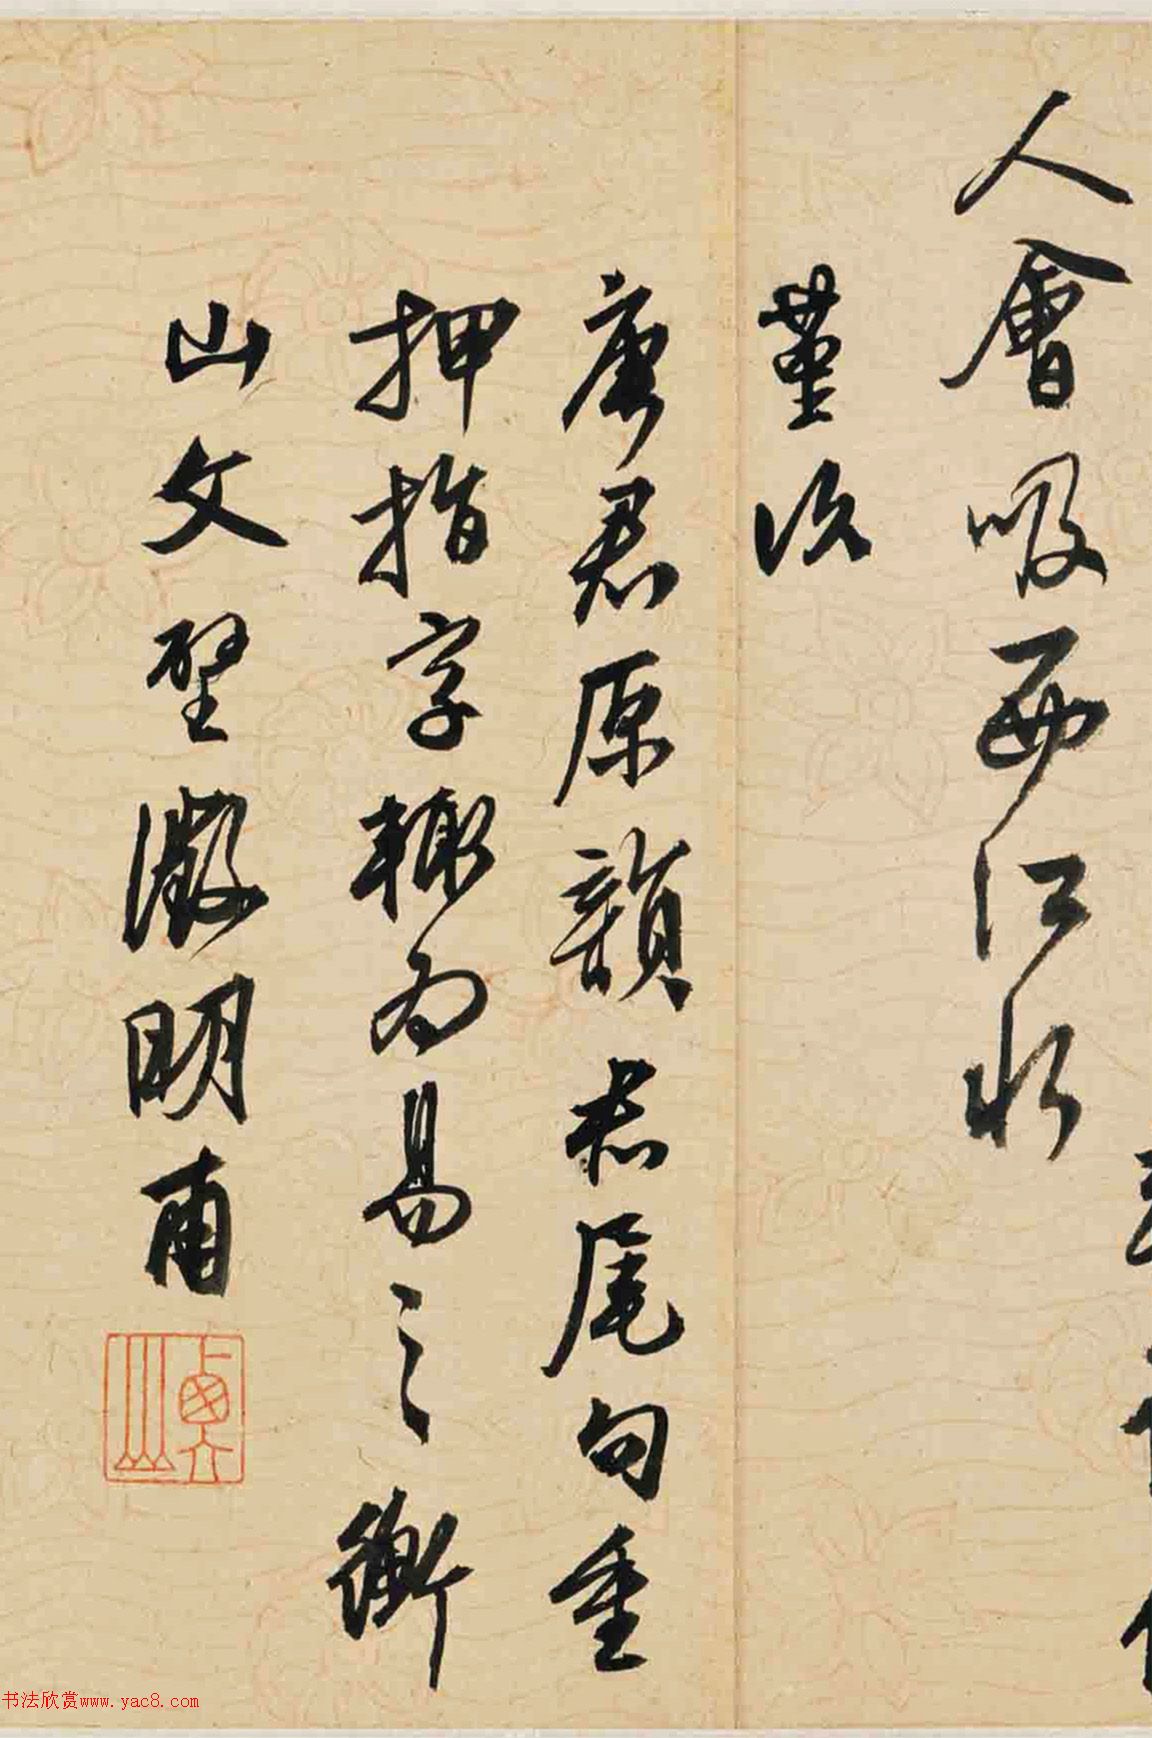 人會吸西江水
堇次
唐君原韻恭尾句重
押指字輙為易之衡
山文壁徵明甫
貞山
书法欣赏www.yac8.com